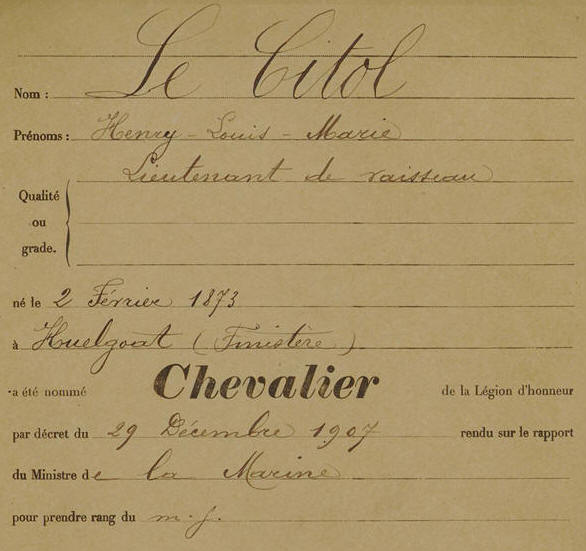 Nom : Le Citol
Prénoms : Henry - Louis - Marie
Lieutenant de vaisseau
Qualité
ou
grade.
né le 2 Février 1873
à Huelgoat (Finistère)
a été nommé Chevalier de la Légion d'honneur
par décret du 29 Décembre 1907 rendu sur le rapport
du Ministre de la Marine
pour prendre rang du m. j.